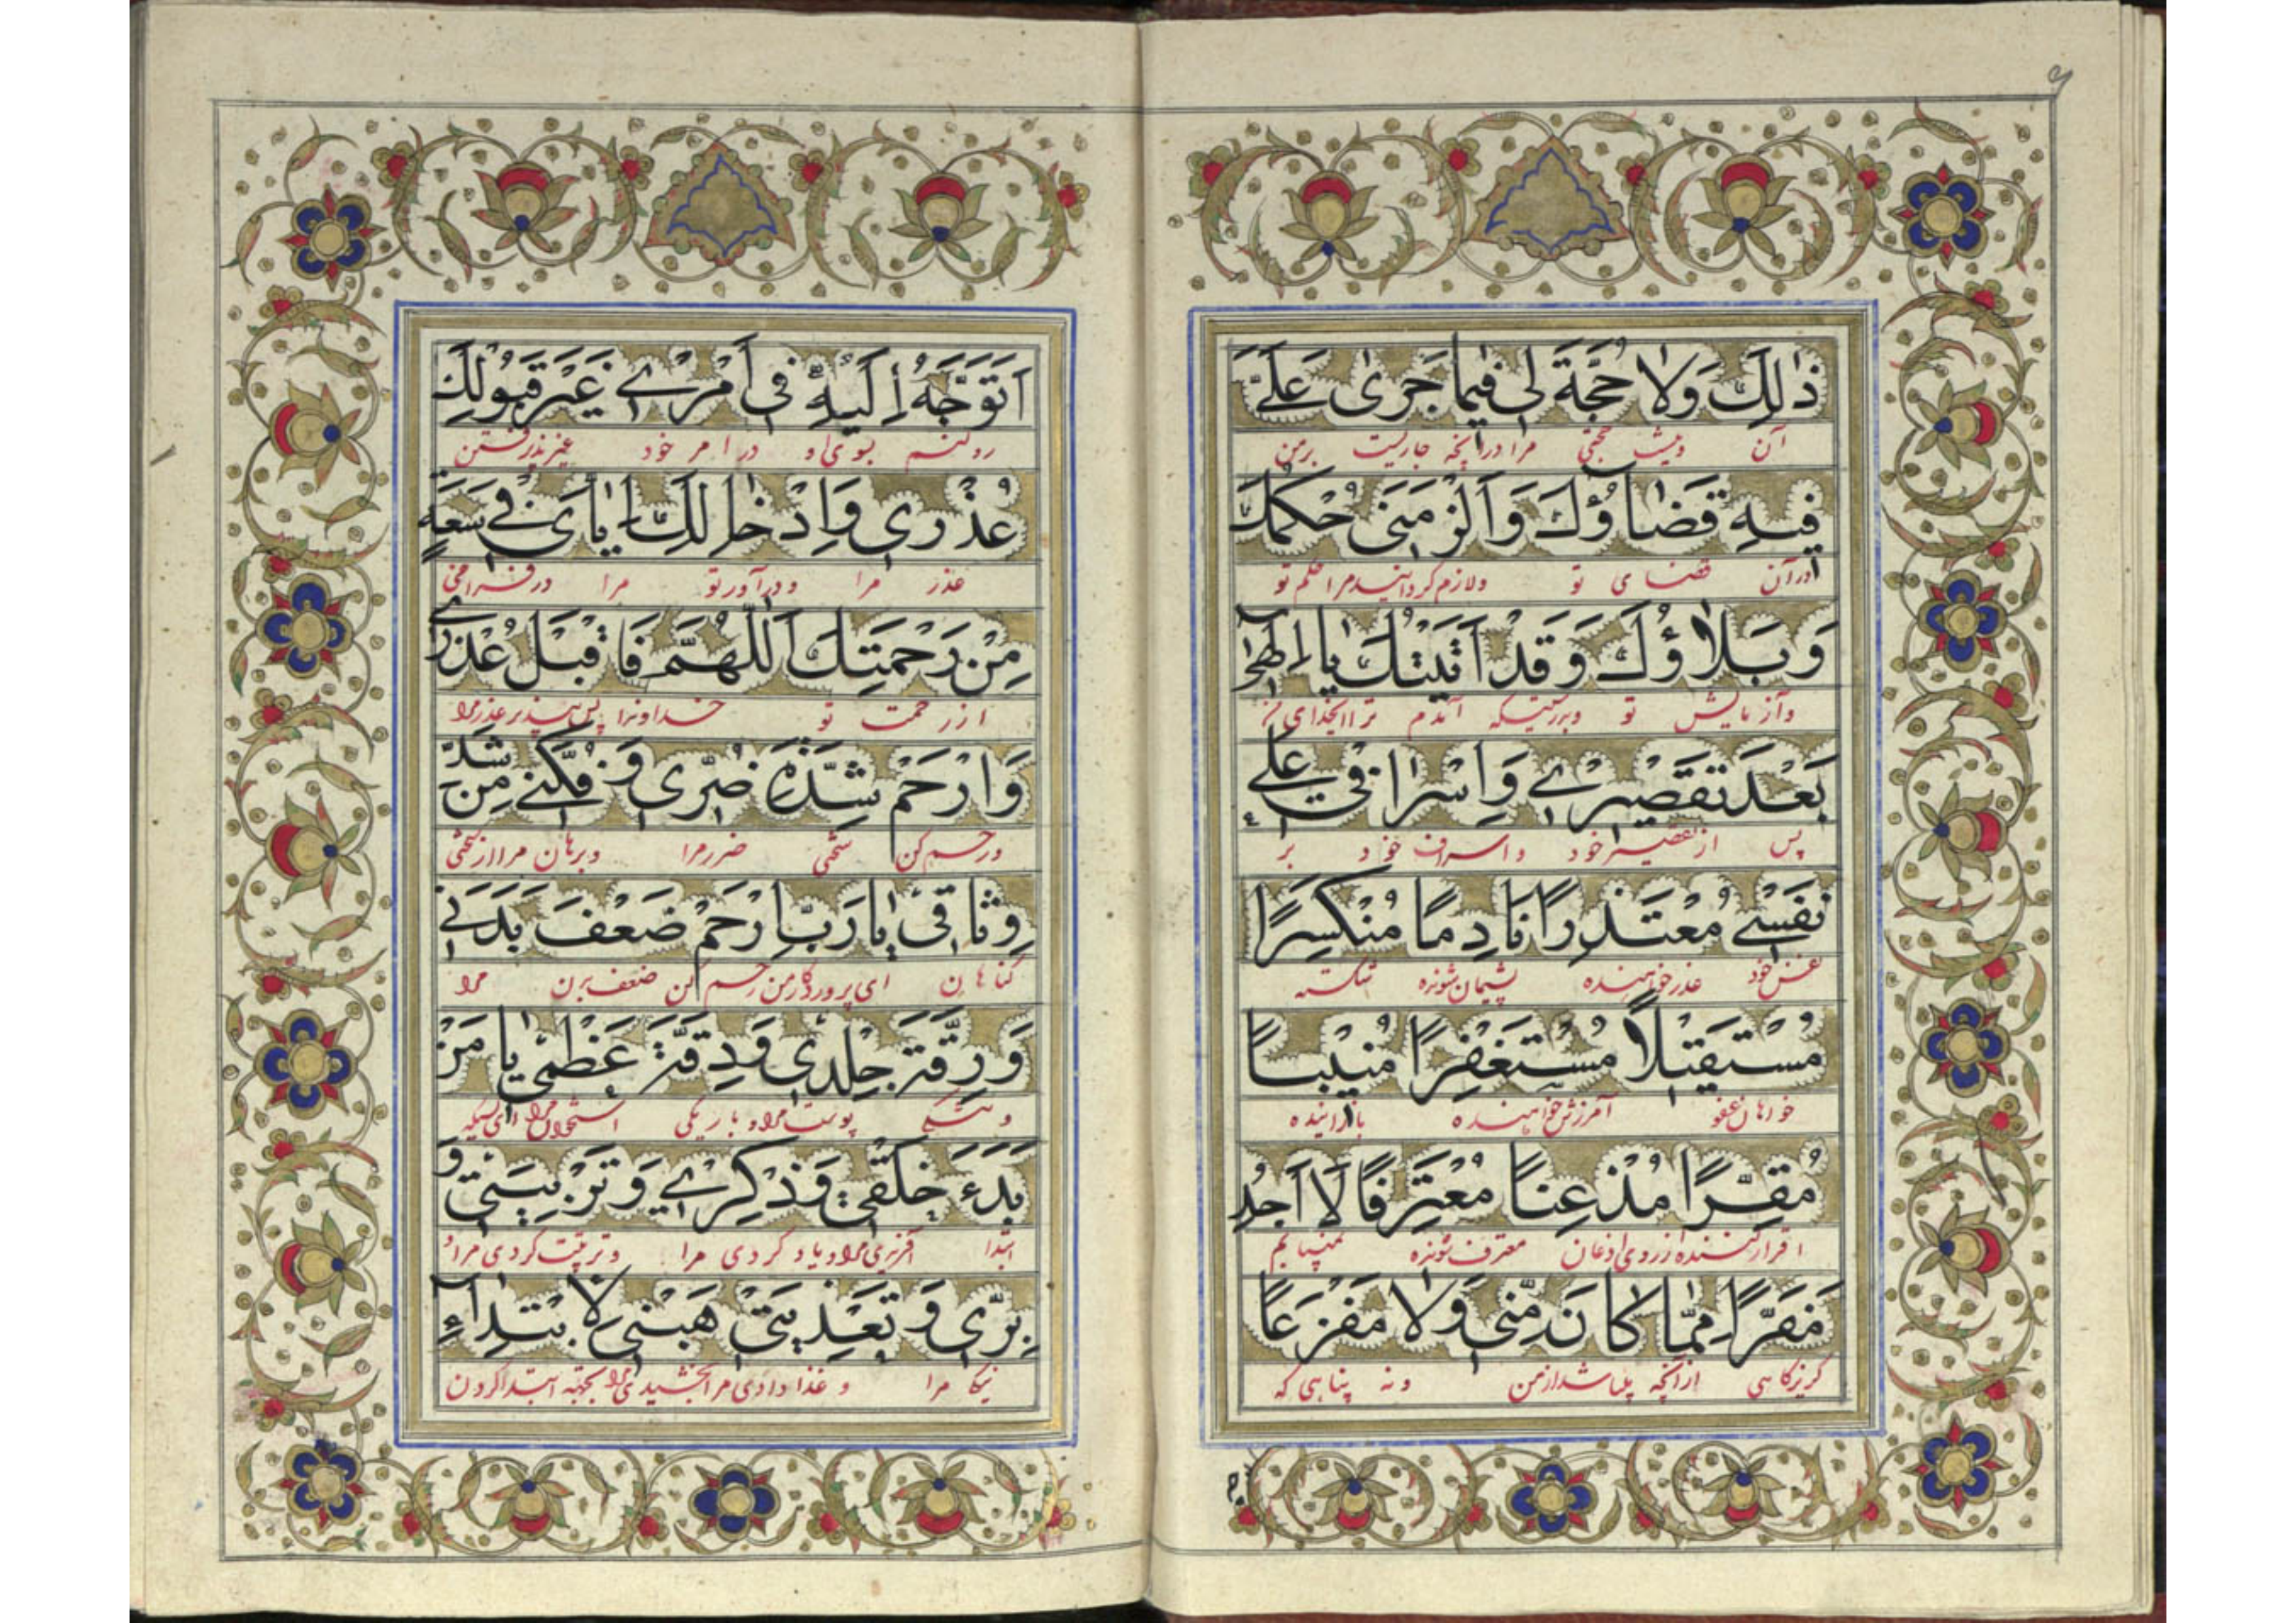 ذٰلِكَ وَلَا حُجَّةَ لِي فِيمَا جَرىٰ عَلَيَّ
آن و نیست حجتی مرا در آنچه جاریست بر من
فِيهِ قَضَاؤُكَ وَاَلْزَمَنِي حُكْمُكَ
در آن قضای تو و لازم گردانیده مرا حکم تو
وَبَلَاؤُكَ وَقَدْ اَتَيْتُكَ يَا اِلٰهِي
و آزمایش تو و بدرستیکه آمدم ترا ای خدای من
بَعْدَ تَقْصِيرِي وَاِسْرَافِي عَلىٰ
پس از تقصیر خود و اسراف خود بر
نَفْسِي مُعْتَذِرًا نَادِمًا مُنْكَسِرًا
نفس خود عذر خواهنده پشیمان شونده شکسته
مُسْتَقِيلًا مُسْتَغْفِرًا مُنِيبًا
خواهان عفو آمرزش خواهنده
مُقِرًّا مُذْعِنًا مُعْتَرِفًا لَا اَجِدُ
اقرار کننده از روی اذعان معترف شونده نمییابم
مَفَرًّا مِمَّا كَانَ مِنِّي وَلَا مَفْزَعًا
گریزگاهی از آنچه از من و نه پناهی که
اَتَوَجَّهُ اِلَيْهِ فِي اَمْرِي غَيْرَ قَبُولِكَ
رو کنم بسوی او در امر خود غیر پذیرفتن
عُذْرِي وَاِدْخَالِكَ اِيَّايَ فِي سَعَةٍ
عذر مرا و در آور تو مرا در فراخی
مِنْ رَحْمَتِكَ اَللّٰهُمَّ فَاقْبَلْ عُذْرِي
از رحمت تو خداوندا پس بپذیر عذر مرا
وَارْحَمْ شِدَّةَ ضُرِّي وَفُكَّنِي مِنْ شَدِّ
و رحم کن سختی ضرر مرا و برهان مرا از سختی
وِثَاقِي يَا رَبِّ ارْحَمْ ضَعْفَ بَدَنِي
گناهان ای پروردگار من رحم کن ضعف بدن مرا
وَرِقَّةَ جِلْدِي وَدِقَّةَ عَظْمِي يَا مَنْ
و پوست مرا و باریکی استخوان مرا ای کسیکه
بَدَءَ خَلْقِي وَذِكْرِي وَتَرْبِيَتِي وَ
ابتدا آفریدی مرا و یاد کردی مرا و تربیت کردی مرا و
بِرِّي وَتَغْذِيَتِي هَبْنِي لِابْتِدَاءِ
نیک مرا و غذا دادی مرا بخشیدی مرا بجهة ابتدا کردن